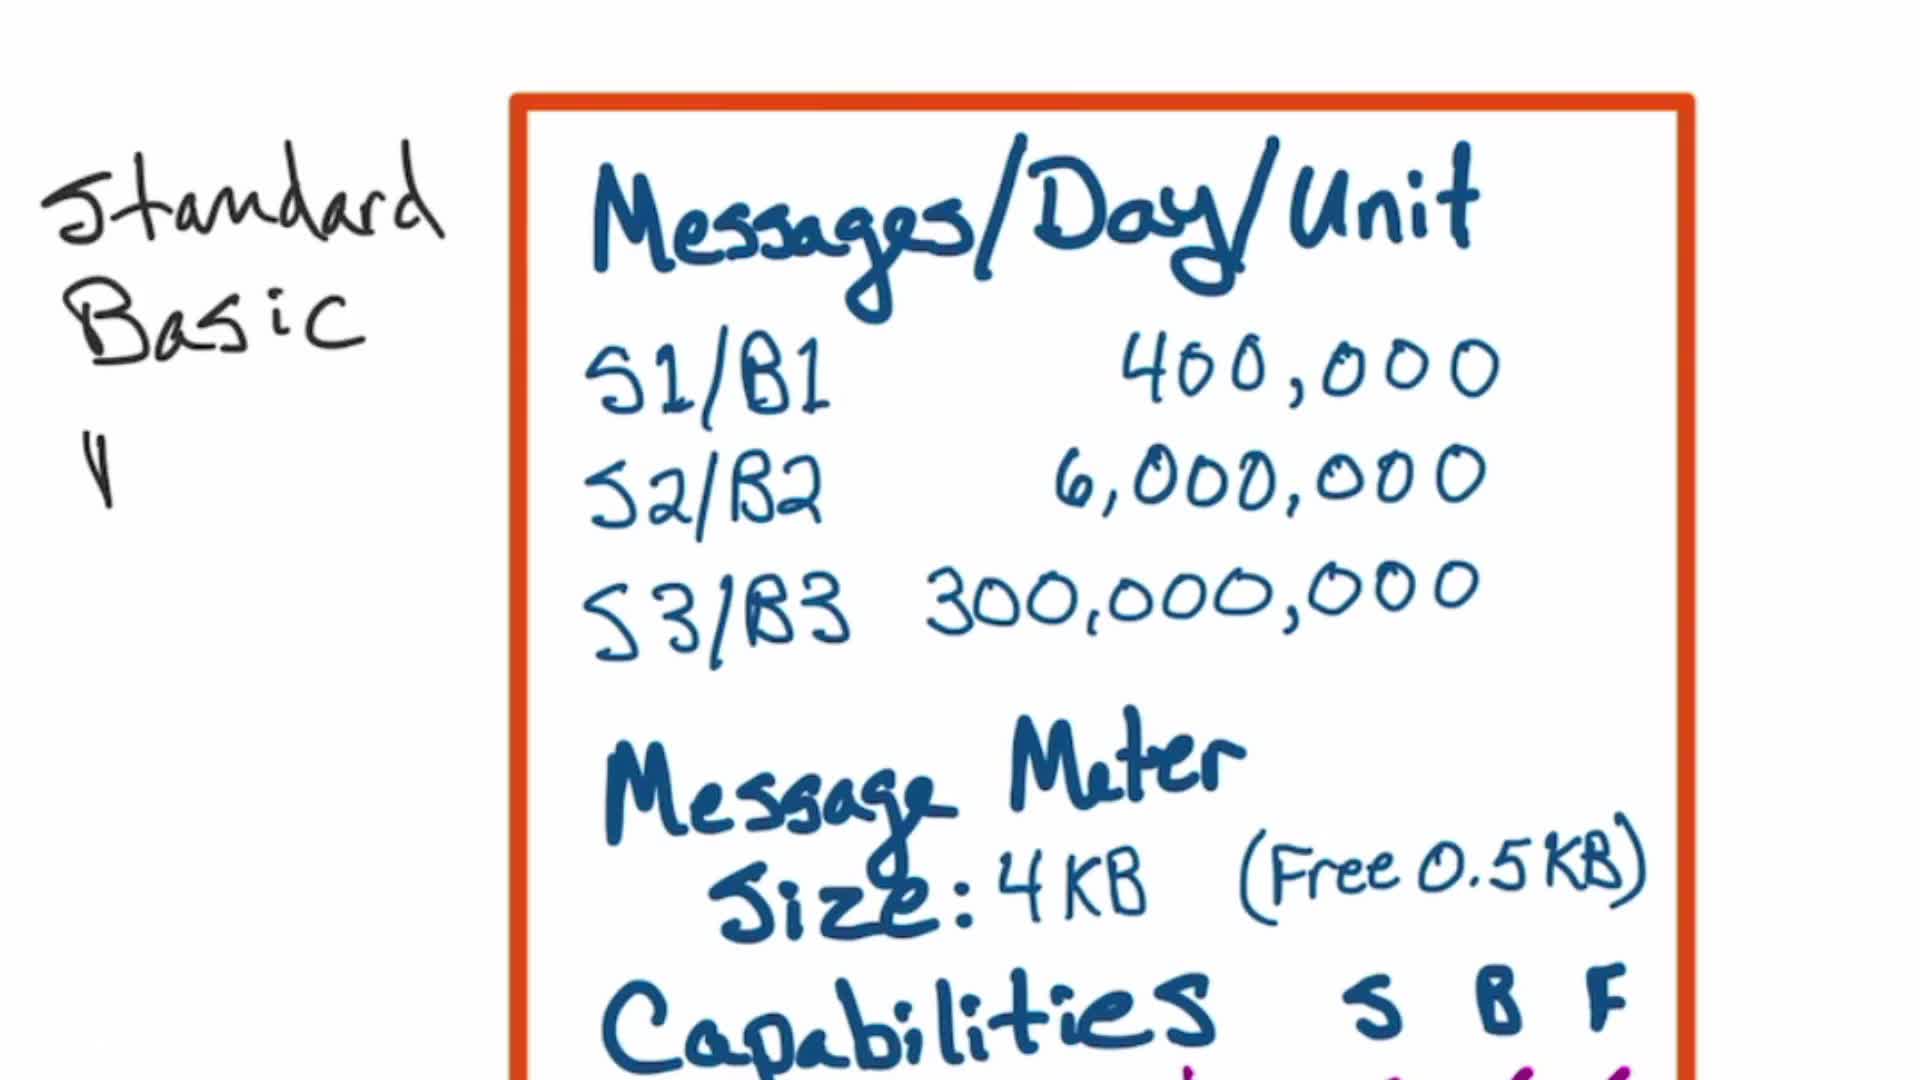 Standard
Basic
Messages/Day/Unit
S1/B1 400,000
S2/B2 6,000,000
S3/B3 300,000,000
Message Meter
Size: 4KB (Free 0.5KB)
Capabilities S B F